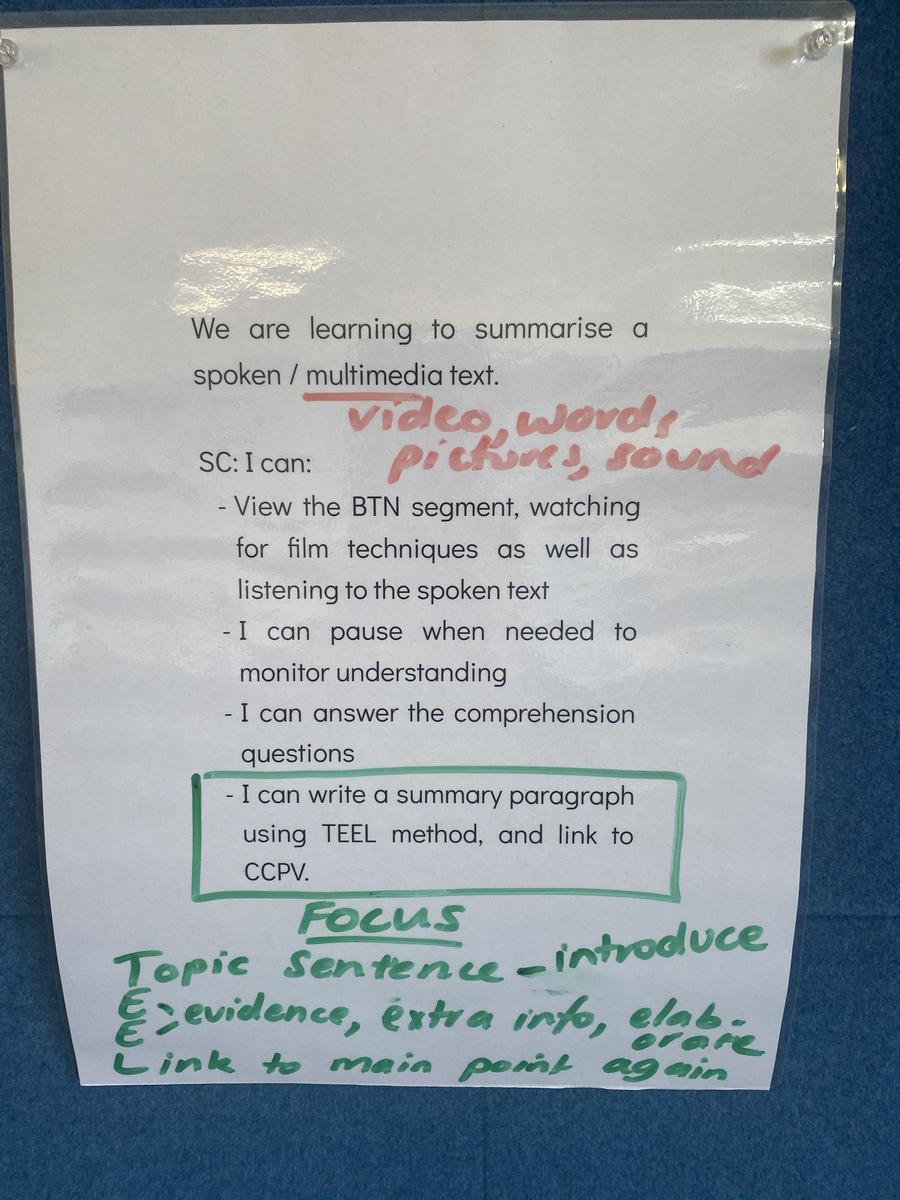 We are learning to summarise a
spoken / multimedia text.
video, words,
pictures, sound
SC: I can:
- View the BTN segment, watching
for film techniques as well as
listening to the spoken text
- I can pause when needed to
monitor understanding
- I can answer the comprehension
questions
- I can write a summary paragraph
using TEEL method, and link to
CCPV.
FOCUS
Topic Sentence - introduce
E
E > evidence, extra info, elab-
orate
Link to main point again